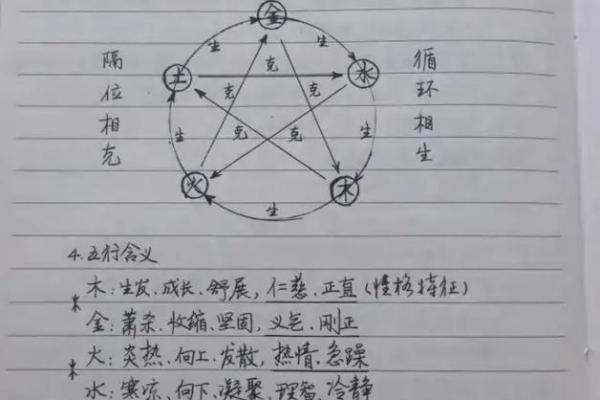 金
生
生
隔位相克
土
克
水
循环相生
克
克
生
克
克
生
火
木
生
4.五行含义
木：生发、成长、舒展，仁慈、正直（性格特征）
金：萧杀、收缩、坚固，义气、刚正
火：炎热、向上、发散，热情、急躁
水：寒凉、向下、凝聚，理智、冷静